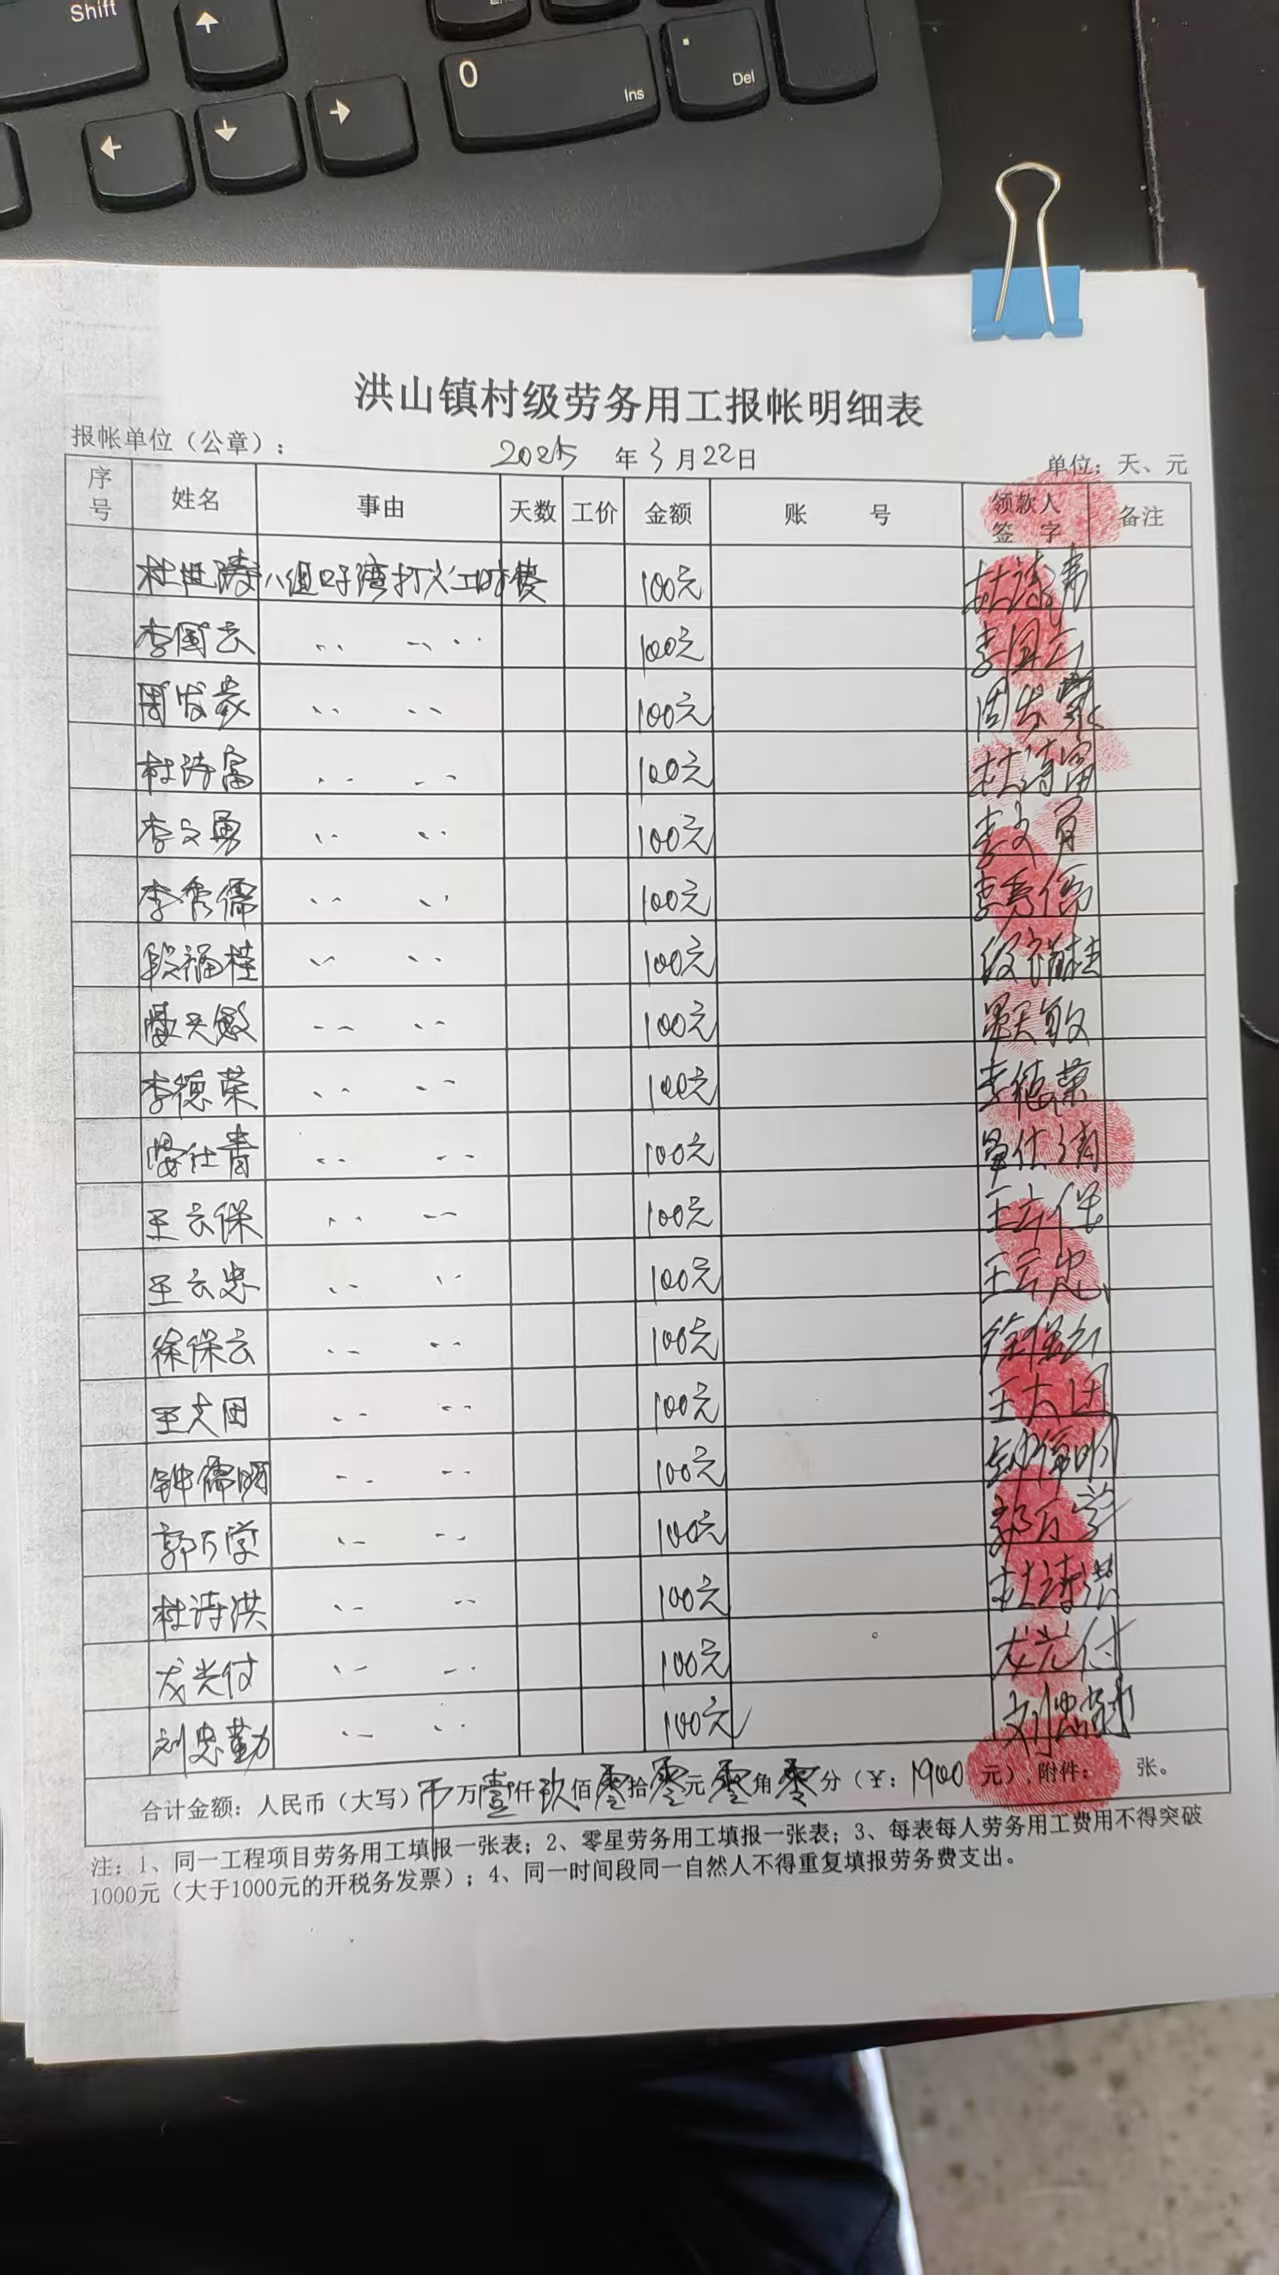 Shift
0
Ins
.
Del
洪山镇村级劳务用工报帐明细表
报帐单位（公章）： 2025 年 3 月 22 日 单位：天、元
序号 姓名 事由 天数 工价 金额 账 号 领款人签 字 备注
杜世涛 八组 打火工时费 100元
李国云 〃 〃 100元 李国云
周发蒙 〃 〃 100元 周发蒙
杜诗富 〃 〃 100元 杜诗富
李文勇 〃 〃 100元 李文勇
李秀儒 〃 〃 100元 李秀儒
段福桂 〃 〃 100元 段福桂
敏 〃 〃 100元 敏
李德荣 〃 〃 100元 李德荣
仕青 〃 〃 100元 仕清
王云保 〃 〃 100元 王云保
王云忠 〃 〃 100元 王云忠
徐保云 〃 〃 100元 徐保云
王大田 〃 〃 100元 王大团
钟儒明 〃 〃 100元 钟儒明
郭万学 〃 〃 100元 郭万学
杜诗洪 〃 〃 100元 杜诗洪
龙光付 〃 〃 100元 龙光付
刘忠勤 〃 〃 100元 刘忠勤
合计金额：人民币（大写） 币 万 壹 仟 玖 佰 零 拾 零 元 零 角 零 分（￥： 1900 元），附件： 张。
注：1、同一工程项目劳务用工填报一张表；2、零星劳务用工填报一张表；3、每表每人劳务用工费用不得突破
1000元（大于1000元的开税务发票）；4、同一时间段同一自然人不得重复填报劳务费支出。